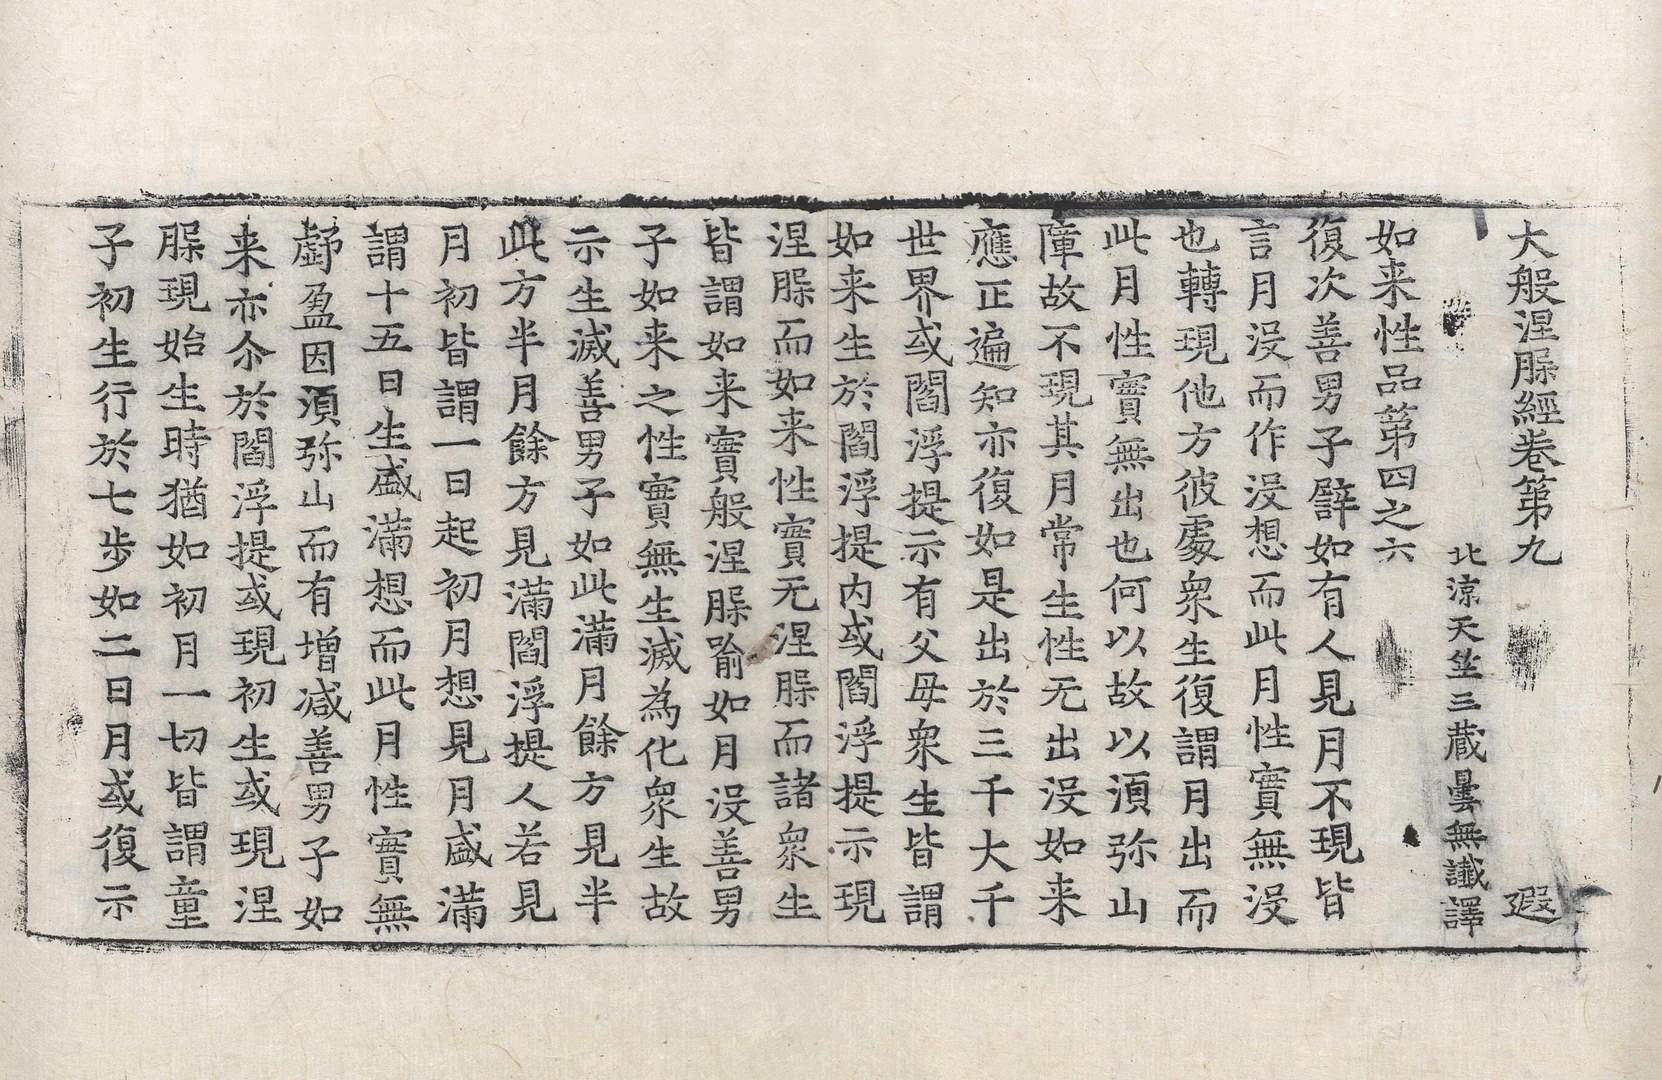 大般涅槃經卷第九　遐
北涼天竺三藏曇無讖譯
如来性品第四之六
復次善男子譬如有人見月不現皆
言月没而作没想而此月性實無没
也轉現他方彼處衆生復謂月出而
此月性實無出也何以故以湏弥山
障故不現其月常生性无出没如来
應正遍知亦復如是出於三千大千
世界或閻浮提示有父母衆生皆謂
如来生於閻浮提内或閻浮提示現
涅槃而如来性實无涅槃而諸衆生
皆謂如来實般涅槃喻如月没善男
子如来之性實無生滅為化衆生故
示生滅善男子如此滿月餘方見半
此方半月餘方見滿閻浮提人若見
月初皆謂一日起初月想見月盛滿
謂十五日生盛滿想而此月性實無
虧盈因湏弥山而有增减善男子如
来亦尒於閻浮提或現初生或現涅
槃現始生時猶如初月一切皆謂童
子初生行於七步如二日月或復示